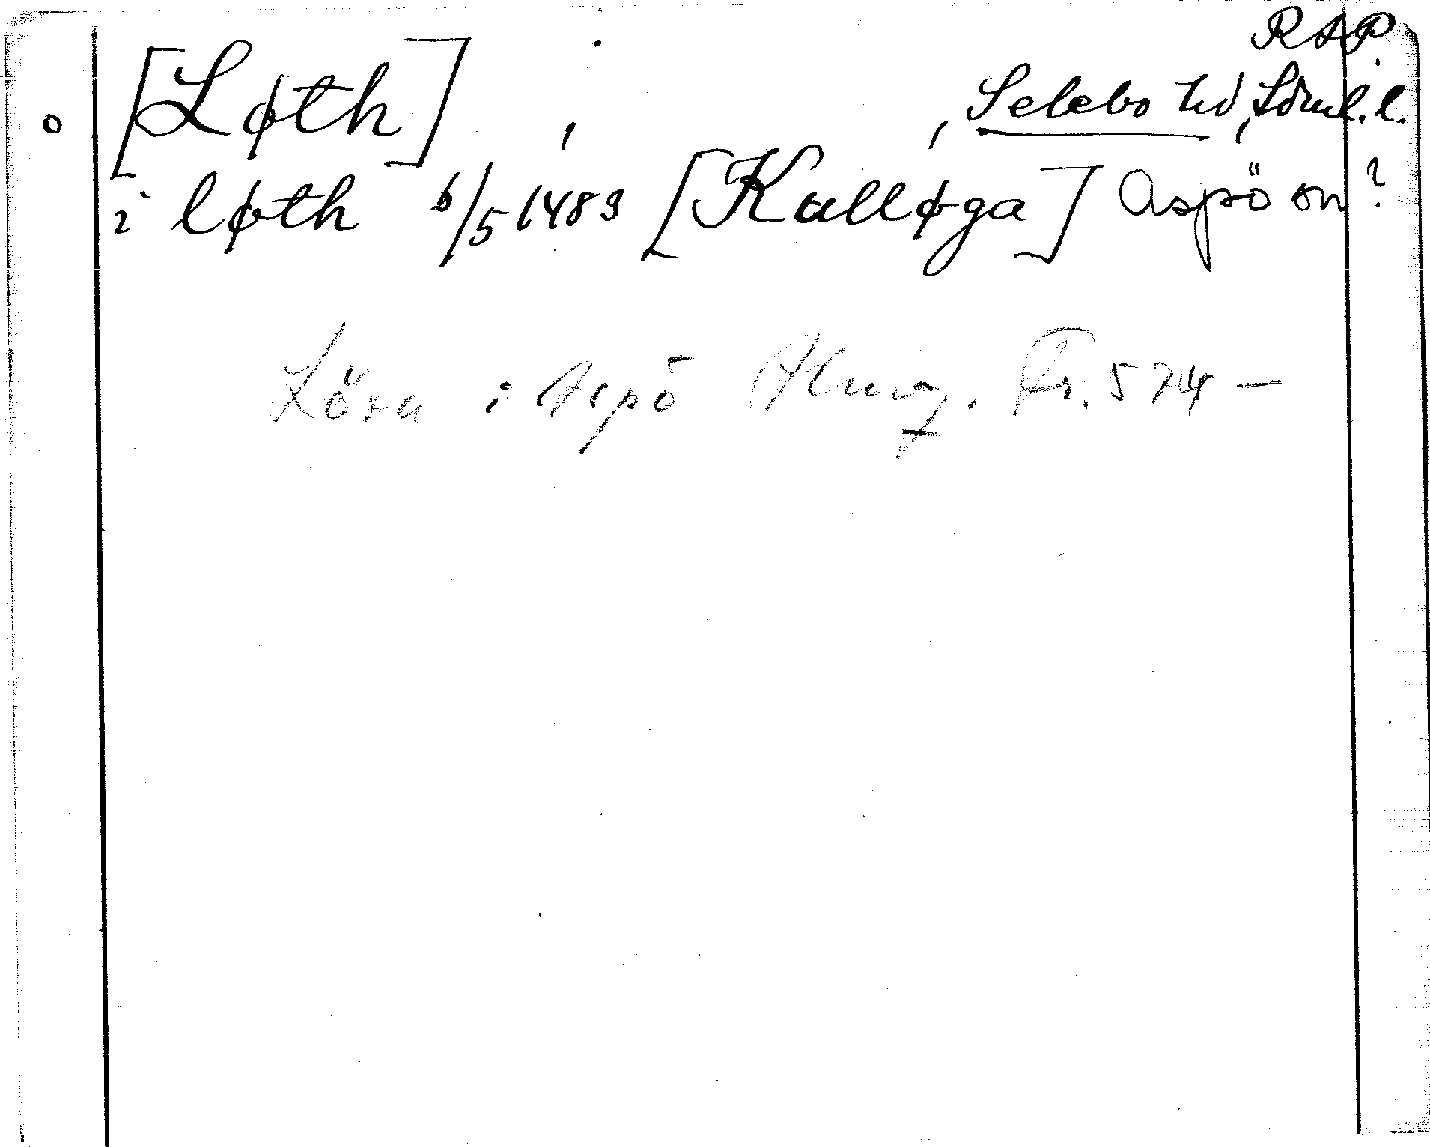 RAP.
o [Løth] , , Selebo hd, Söml. l.
i løth 6/5 1483 [Kalløga] Aspö sn ?
Löta i Aspö Hmg. Fr. 574 —